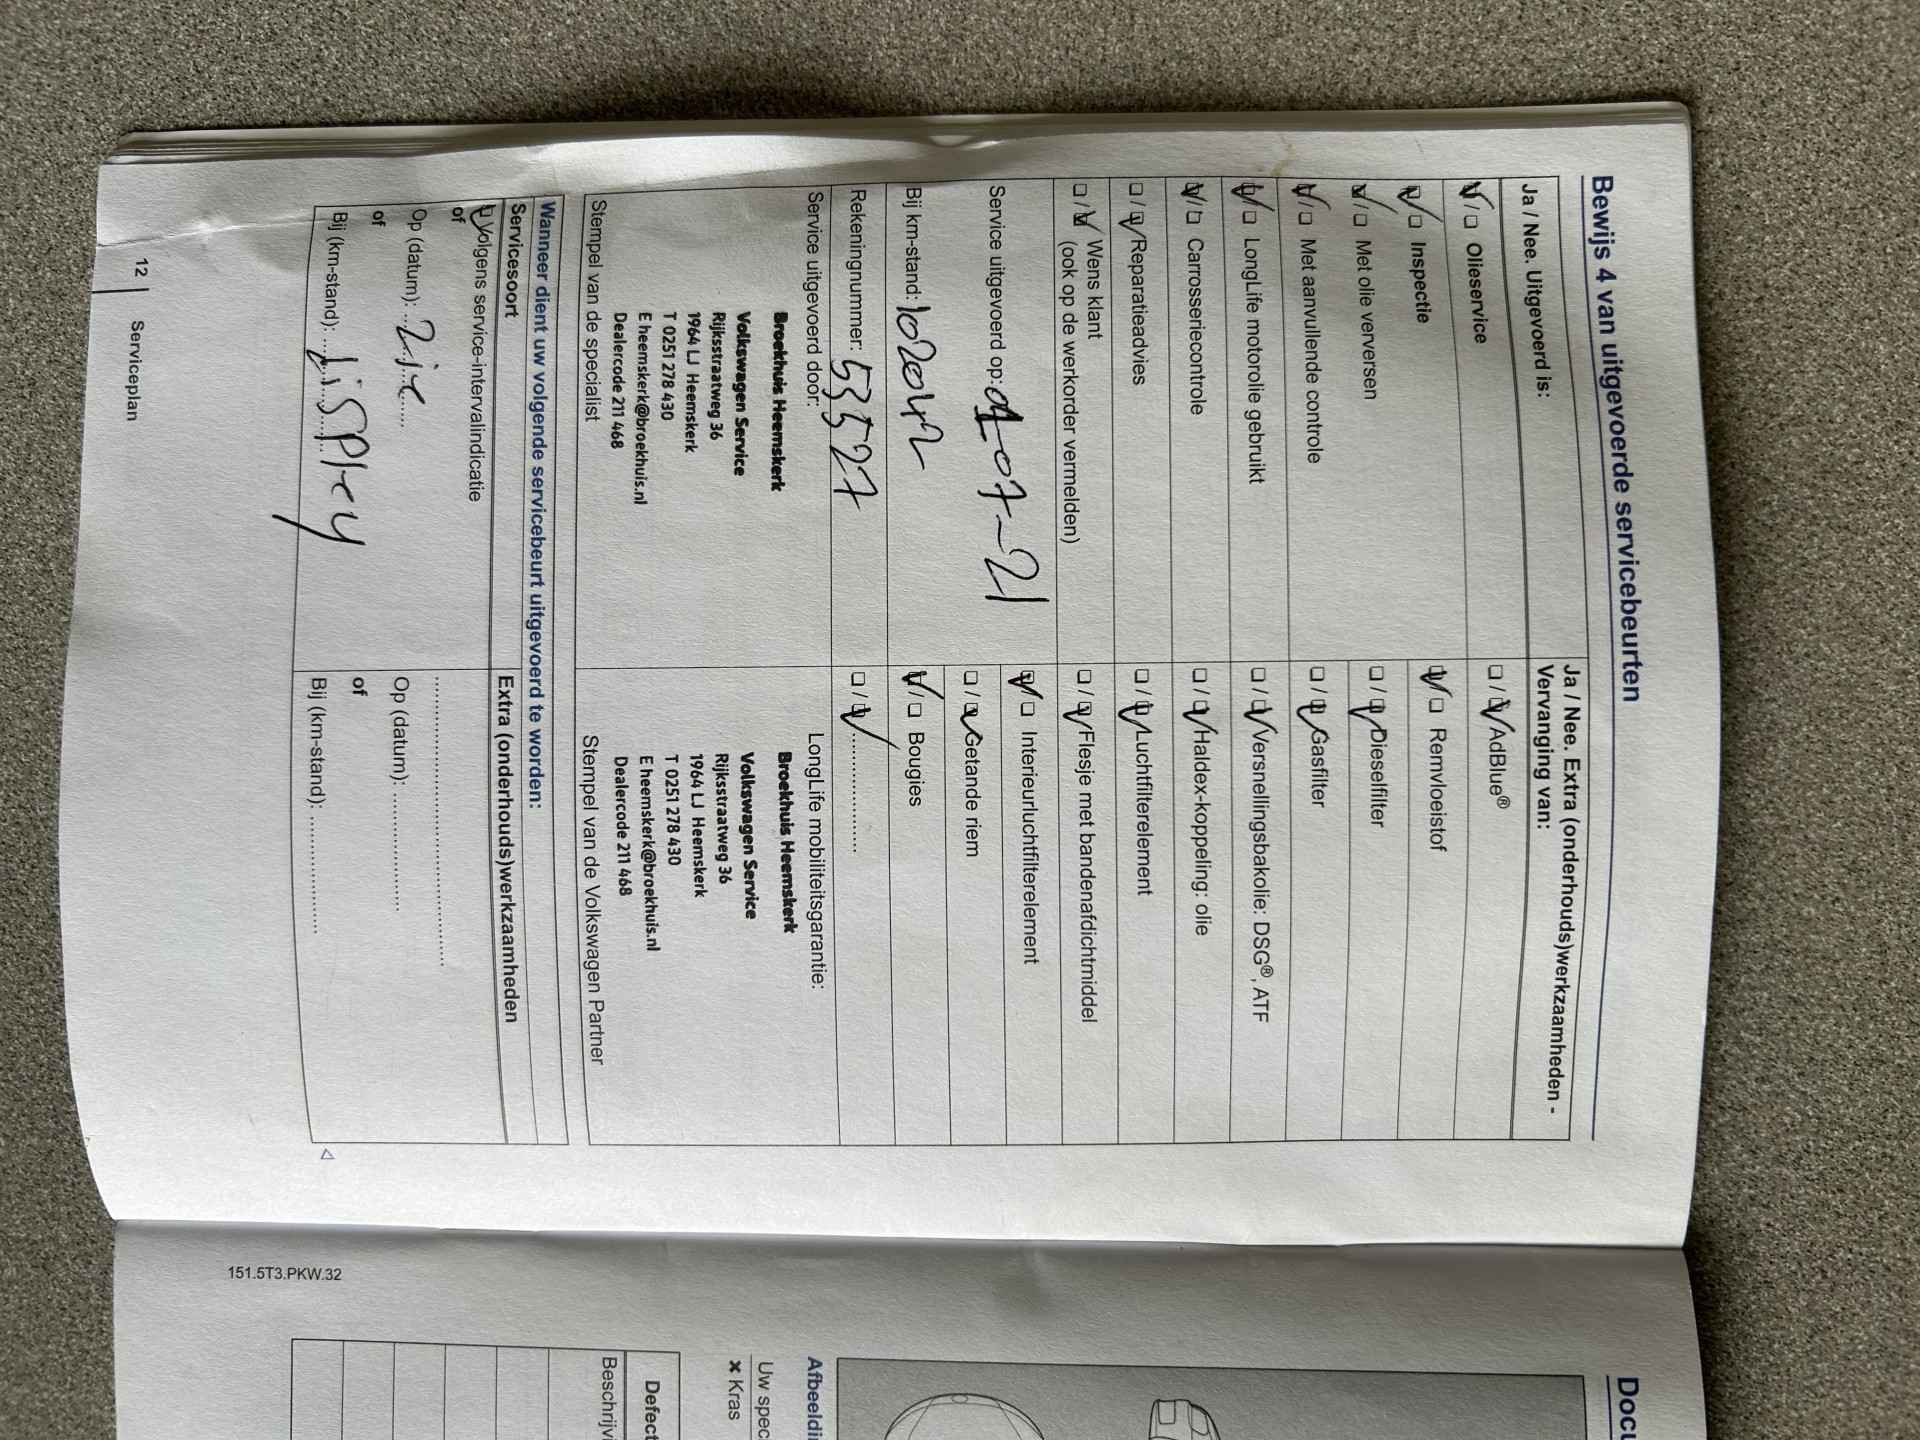 Bewijs 4 van uitgevoerde servicebeurten
Ja / Nee. Uitgevoerd is:
☑ / ☐ Olieservice
☑ / ☐ Inspectie
☑ / ☐ Met olie verversen
☑ / ☐ Met aanvullende controle
☑ / ☐ LongLife motorolie gebruikt
☑ / ☐ Carrosseriecontrole
☐ / ☑ Reparatieadvies
☐ / ☑ Wens klant
(ook op de werkorder vermelden)
Service uitgevoerd op: 01-07-21
Bij km-stand: 102042
Rekeningnummer: 53527
Service uitgevoerd door:
Broekhuis Heemskerk
Volkswagen Service
Rijksstraatweg 36
1964 LJ Heemskerk
T 0251 278 430
E heemskerk@broekhuis.nl
Dealercode 211 468
Stempel van de specialist
Ja / Nee. Extra (onderhouds)werkzaamheden -
Vervanging van:
☐ / ☑ AdBlue®
☑ / ☐ Remvloeistof
☐ / ☑ Dieselfilter
☐ / ☑ Gasfilter
☐ / ☑ Versnellingsbakolie: DSG®, ATF
☐ / ☑ Haldex-koppeling: olie
☐ / ☑ Luchtfilterelement
☐ / ☑ Flesje met bandenafdichtmiddel
☑ / ☐ Interieurluchtfilterelement
☐ / ☑ Getande riem
☑ / ☐ Bougies
☐ / ☑ ....................
LongLife mobiliteitsgarantie:
Broekhuis Heemskerk
Volkswagen Service
Rijksstraatweg 36
1964 LJ Heemskerk
T 0251 278 430
E heemskerk@broekhuis.nl
Dealercode 211 468
Stempel van de Volkswagen Partner
Wanneer dient uw volgende servicebeurt uitgevoerd te worden:
Servicesoort
☑ Volgens service-intervalindicatie
of
Op (datum): zie
of
Bij (km-stand): display
Extra (onderhouds)werkzaamheden
..................................................
Op (datum): ....................
of
Bij (km-stand): ....................
12 | Serviceplan
151.5T3.PKW.32
Docu
Afbeeldin
Uw spec
× Kras
Defect
Beschrijvi